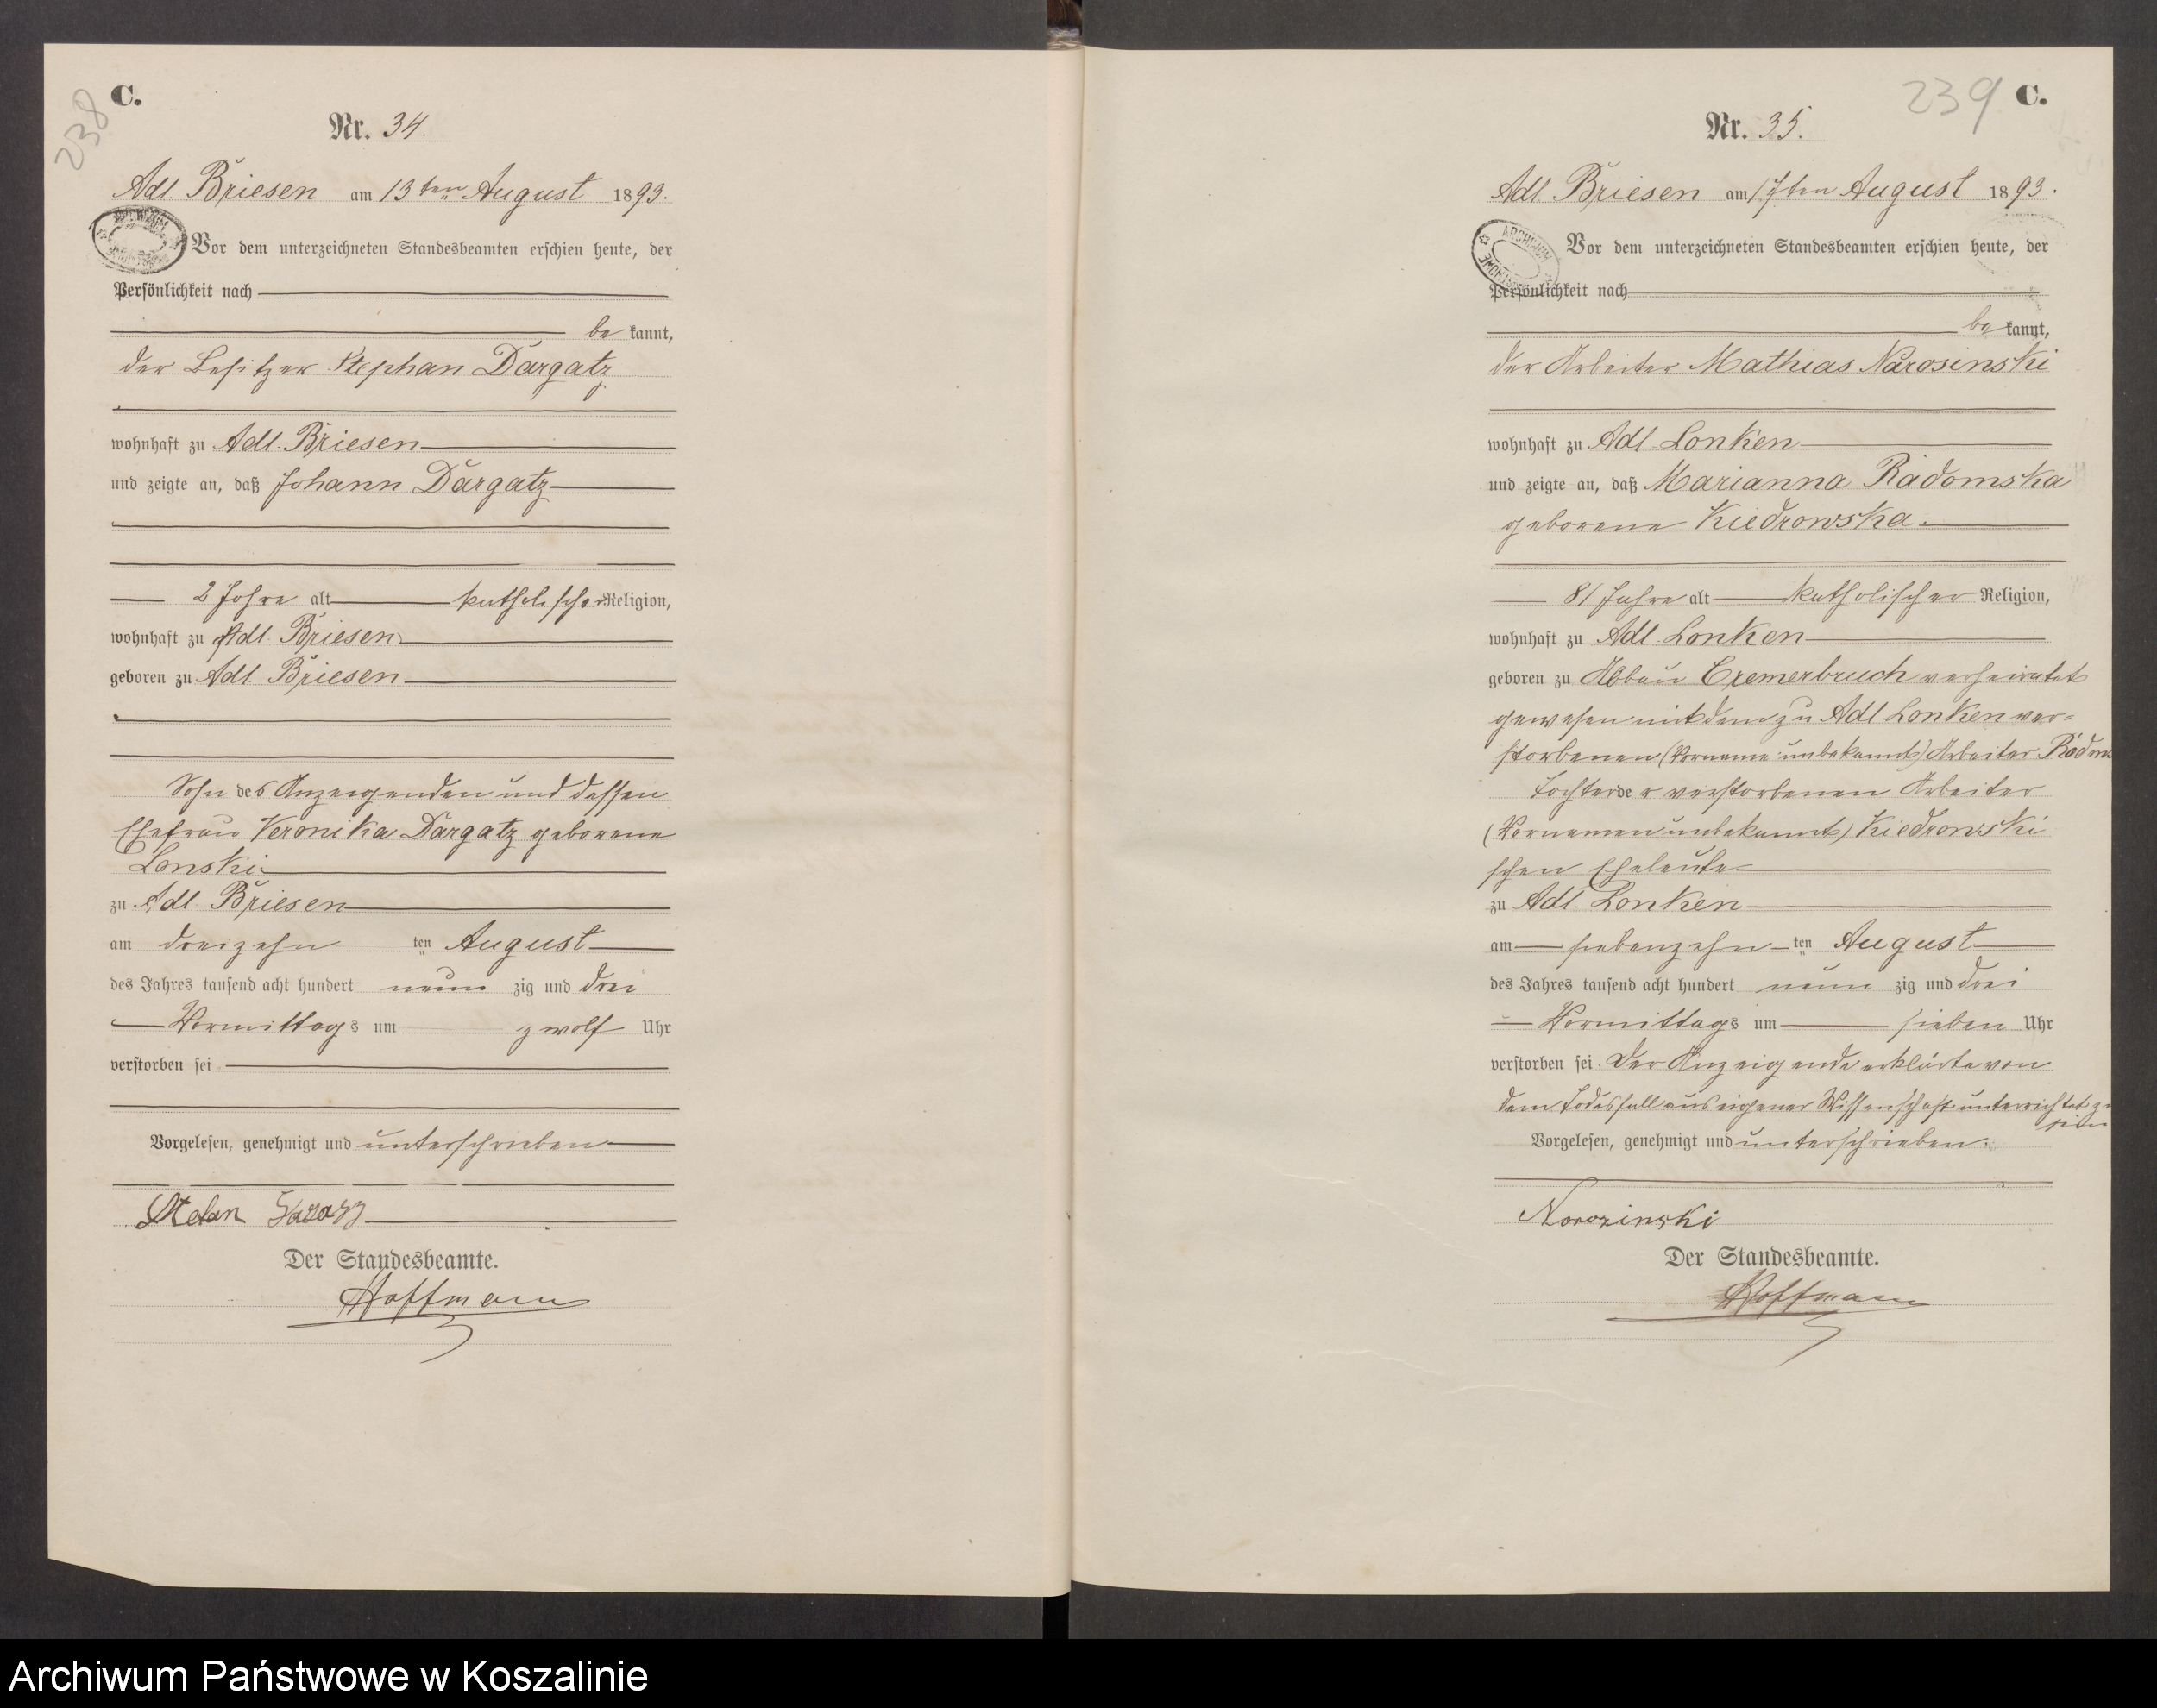 238
C.
Nr. 34.
Adl. Briesen am 13ten August 1893.
Vor dem unterzeichneten Standesbeamten erschien heute, der
Persönlichkeit nach
be kannt,
der Besitzer Stephan Dargatz
wohnhaft zu Adl. Briesen
und zeigte an, daß Johann Dargatz
2 Jahre alt katholischer Religion,
wohnhaft zu Adl. Briesen
geboren zu Adl. Briesen
Sohn des Anzeigenden und dessen
Ehefrau Veronika Dargatz geborene
Lonski
zu Adl. Briesen
am dreizehn ten August
des Jahres tausend acht hundert neun zig und drei
Vormittags um zwölf Uhr
verstorben sei
Vorgelesen, genehmigt und unterschrieben
Der Standesbeamte.
Hoffmann
239
C.
Nr. 35.
Adl. Briesen am 17ten August 1893.
ARCHIWUM
Vor dem unterzeichneten Standesbeamten erschien heute, der
Persönlichkeit nach
be kannt,
der Arbeiter Mathias Narosinski
wohnhaft zu Adl. Lonken
und zeigte an, daß Marianna Radomska
geborene Kiedrowska.
81 Jahre alt katholischer Religion,
wohnhaft zu Adl. Lonken
geboren zu Abbau Cremerbruch verheiratet
gewesen mit dem zu Adl. Lonken ver=
storbenen (Vorname unbekannt) Arbeiter Radoms
Tochter der verstorbenen Arbeiter
(Vornamen unbekannt) Kiedrowski
schen Eheleute
zu Adl. Lonken
am siebenzehn ten August
des Jahres tausend acht hundert neun zig und drei
Vormittags um sieben Uhr
verstorben sei. Der Anzeigende erklärte von
dem Todesfall aus eigener Wissenschaft unterrichtet zu
sein
Vorgelesen, genehmigt und unterschrieben.
Narozinski
Der Standesbeamte.
Hoffmann
Archiwum Państwowe w Koszalinie